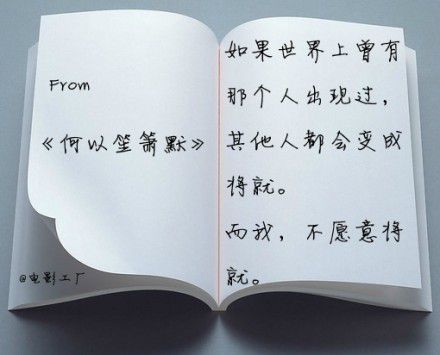 From
《何以笙箫默》
@电影工厂
如果世界上曾有
那个人出现过，
其他人都会变成
将就。
而我，不愿意将
就。